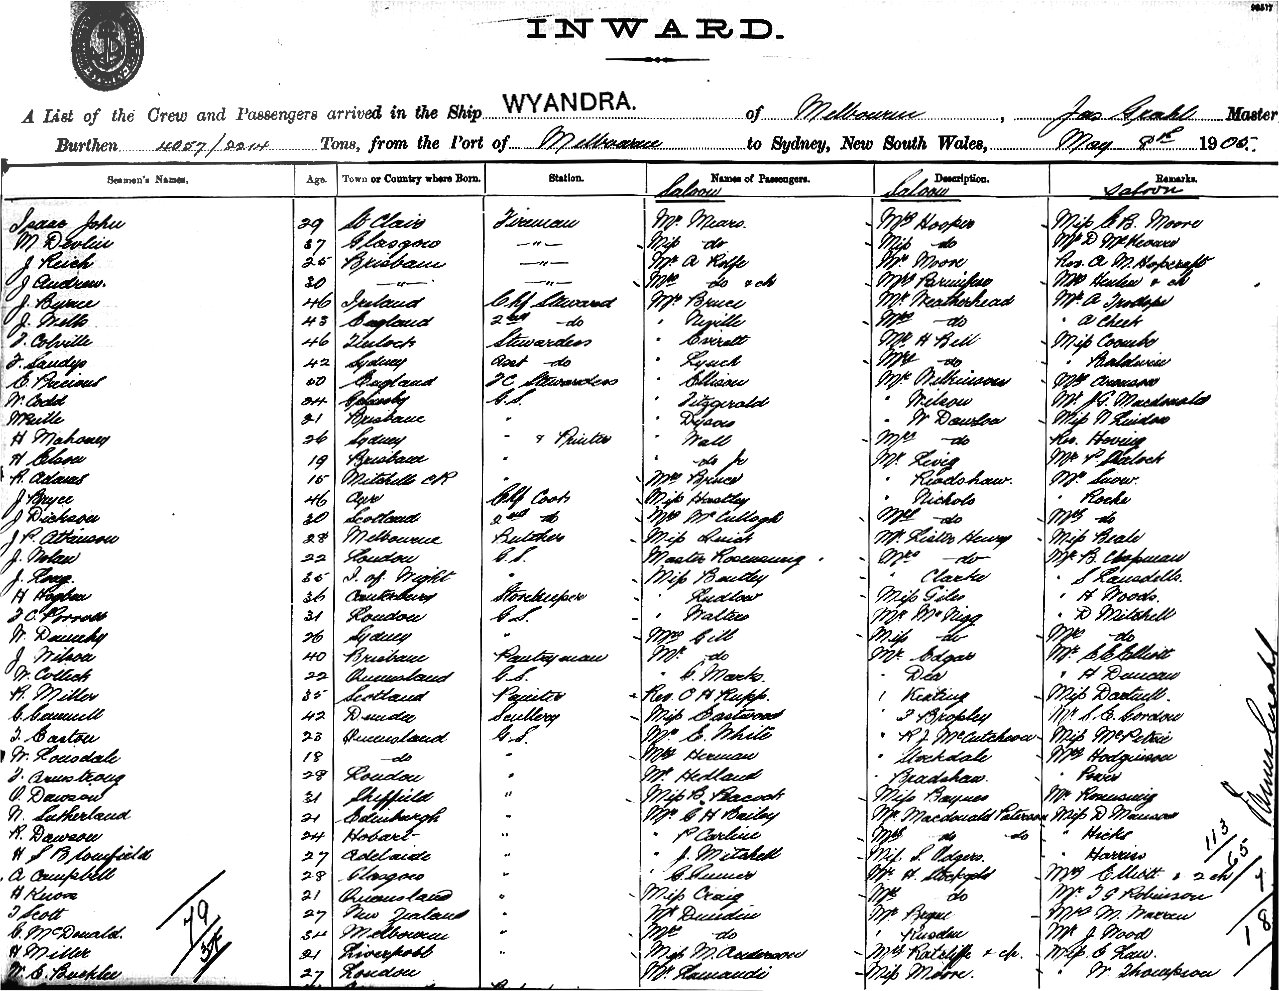 INWARD.
A List of the Crew and Passengers arrived in the Ship WYANDRA. of Melbourne, Jas Grahl Master
Burthen 4057/2214 Tons, from the Port of Melbourne to Sydney, New South Wales, May 8th 1905.
Seamen's Names. Age. Town or Country where Born. Station. Names of Passengers. Description. Remarks.
Saloon Saloon Saloon
Isaac John 29 St Clair Fireman Mr. Mears. Mrs Hooper Miss C B. Moore
M Devlin 37 Glasgow —"— Miss do Miss do Mr D McKeown
J Reich 25 Brisbane —"— Mr A Rolfe Mr Moore Rev. A. M. Hopcraft
J Andrew. 30 —"— —"— Mrs do & ch Mrs & ch
J. Byrne 46 Ireland Chf Steward Mr Bruce Mr Weatherhead Mr A
J. Mills 43 England 2nd do " Neville Mrs do " A Cheek
T. Colville 46 Stewardess " Everett Mr H Bell Miss Coombs
T. Sandys 42 Sydney Asst do " Lynch Mrs do " Baldwin
C Precious 50 England F.C. Stewardess " Ellison Mr Wilkinson Mrs
W Codd 24 G.S. " Fitzgerald " Wilson Mr J.G. Macdonald
21 Brisbane " " Dyson " W Miss N Lindon
H Mahoney 26 Sydney " & Printer " Wall Mrs do Rev. Hoving
H 19 Brisbane " " do Jr Mr Mr P
R. Adams 15 Mitchell " Mrs Bruce " Readshaw. Mr Snow.
J Bryce 46 Ayr Chf Cook Miss Hartley " Nichols " Roche
J Dickson 30 Scotland 2nd do Mrs McCullogh Mrs do Mrs do
J P. Atkinson 28 Melbourne Butcher Miss Quick Mr. Lister Henry Miss Beale
J. Nolan 22 London G.S. Master Rosensung Mrs do Mr B. Chapman
J. 35 I. of Wight " Miss Bentley " Clarke " S Lansdells.
H 36 Canterbury Storekeeper " Ludlow Miss Giles " H Woods.
T. C. 31 London G.S. " Walters Mr " D Mitchell
W. 26 Sydney " Mrs Gill Miss do Mrs do
J. Wilson 40 Brisbane Pantryman Mr. do Mr. Edgar Mr C E Elliott
W. 22 Queensland G.S. " C. Marks. " Dea " H Duncan
R. Miller 35 Scotland Painter Rev. C H Rupp. " Keating Miss
C 42 Scullery Miss Eastwood " T Brophy Mr S. E. Gordon
T. Easton 23 Queensland G.S. Mr C. White " R J McCutcheon Miss
W. Lonsdale 18 do " Mrs Herman " Stockdale Mrs Hodginson
T. Armstrong 28 London " Mr Hedland " Bradshaw. " Power
O. Dawson 31 Sheffield " Miss B. Peacock Miss Baynes Mr Rosensung
N. Sutherland 21 Edinburgh " Mr C H Bailey Mr Macdonald Paterson Miss D
R. Dawson 24 Hobart " " P Carline Mrs do do " Hicks
H S Blomfield 27 Adelaide " " J. Mitchell Miss S. Odgers. " Harriss
A Campbell 28 Glasgow " " C Mr H Mrs Elliott & 2 ch
H Knox 21 Queensland " Miss Craig Mrs do Mr. T G Robinson
T Scott 27 New Zealand " Mr Dundin Mr Mrs M. Warren
C. McDonald. 34 Melbourne " Mrs do " Mr J Wood
H Miller 21 Liverpool " Miss M. Anderson Mrs Ratcliffe & ch. Miss E Law.
W. E. 27 London Mr. Miss Moore. " W. Thompson
79/35
113/65
7
18
James Grahl